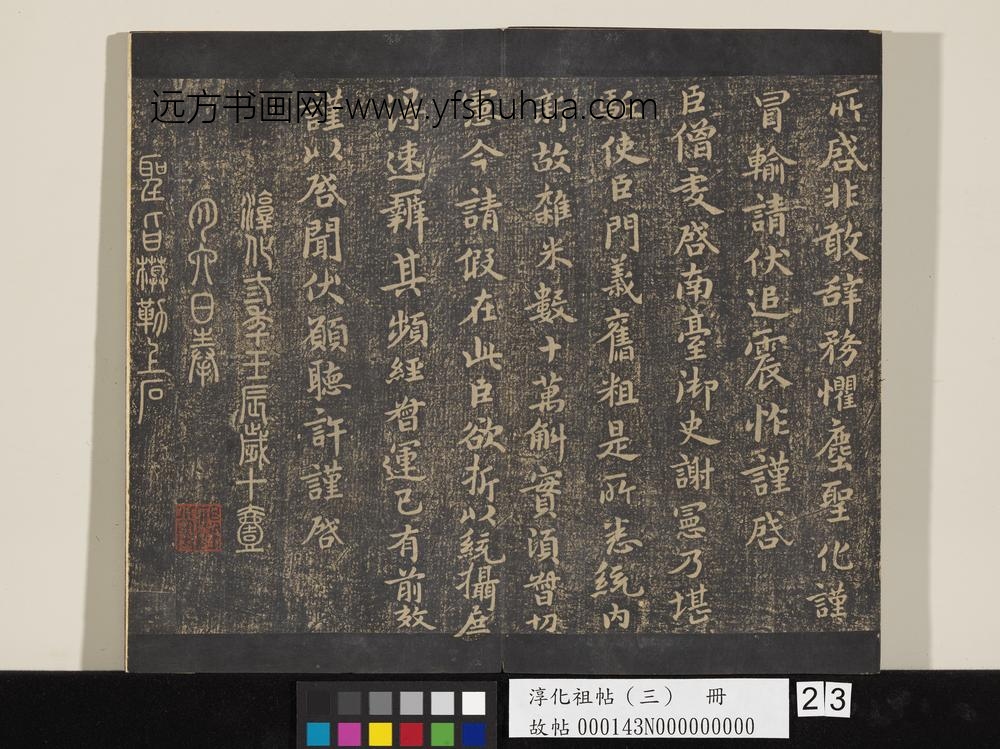 所啓非敢辞務懼塵聖化謹
冒輸請伏追震怍謹啓
臣僧虔啓南臺御史謝憲乃堪
驅使臣門義舊粗是所悉統內
故雜米數十萬斛實須督切
憲今請假在此臣欲折以統攝庶
得速辦其頻經督運已有前效
謹以啓聞伏願聽許謹啓
淳化三年壬辰歲十壹
月六日奉
聖旨模勒上石
远方书画网-www.yfshuhua.com
淳化祖帖（三） 冊
故帖 000143N000000000
23